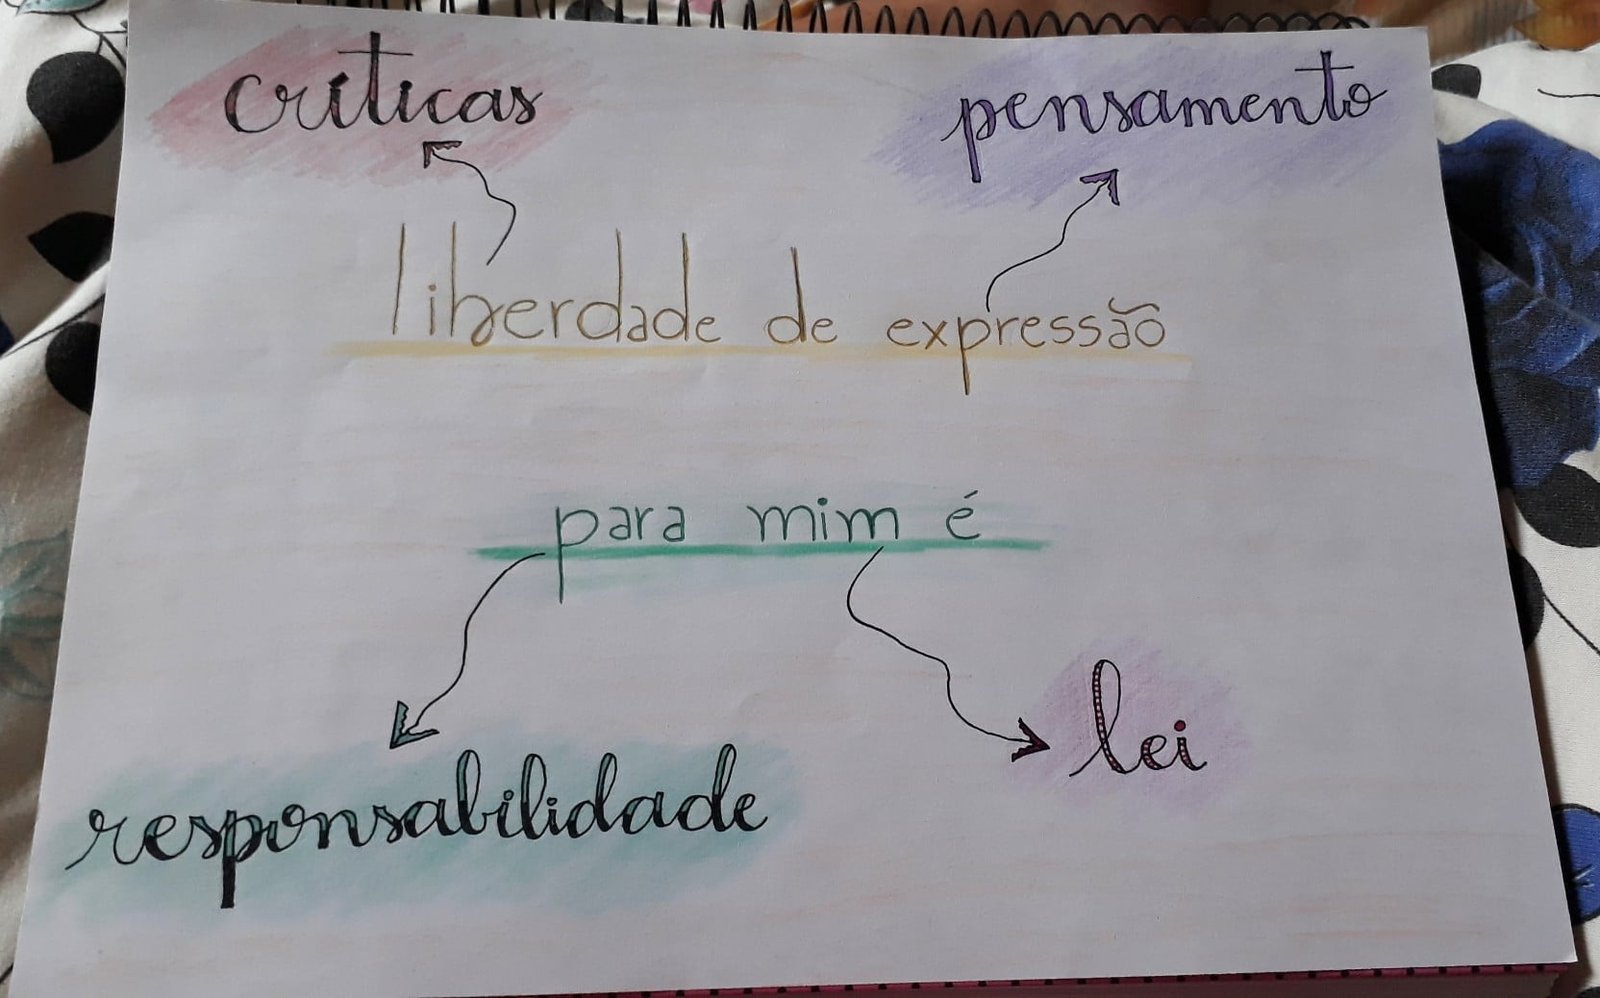 críticas
pensamento
liberdade de expressão
para mim é
lei
responsabilidade